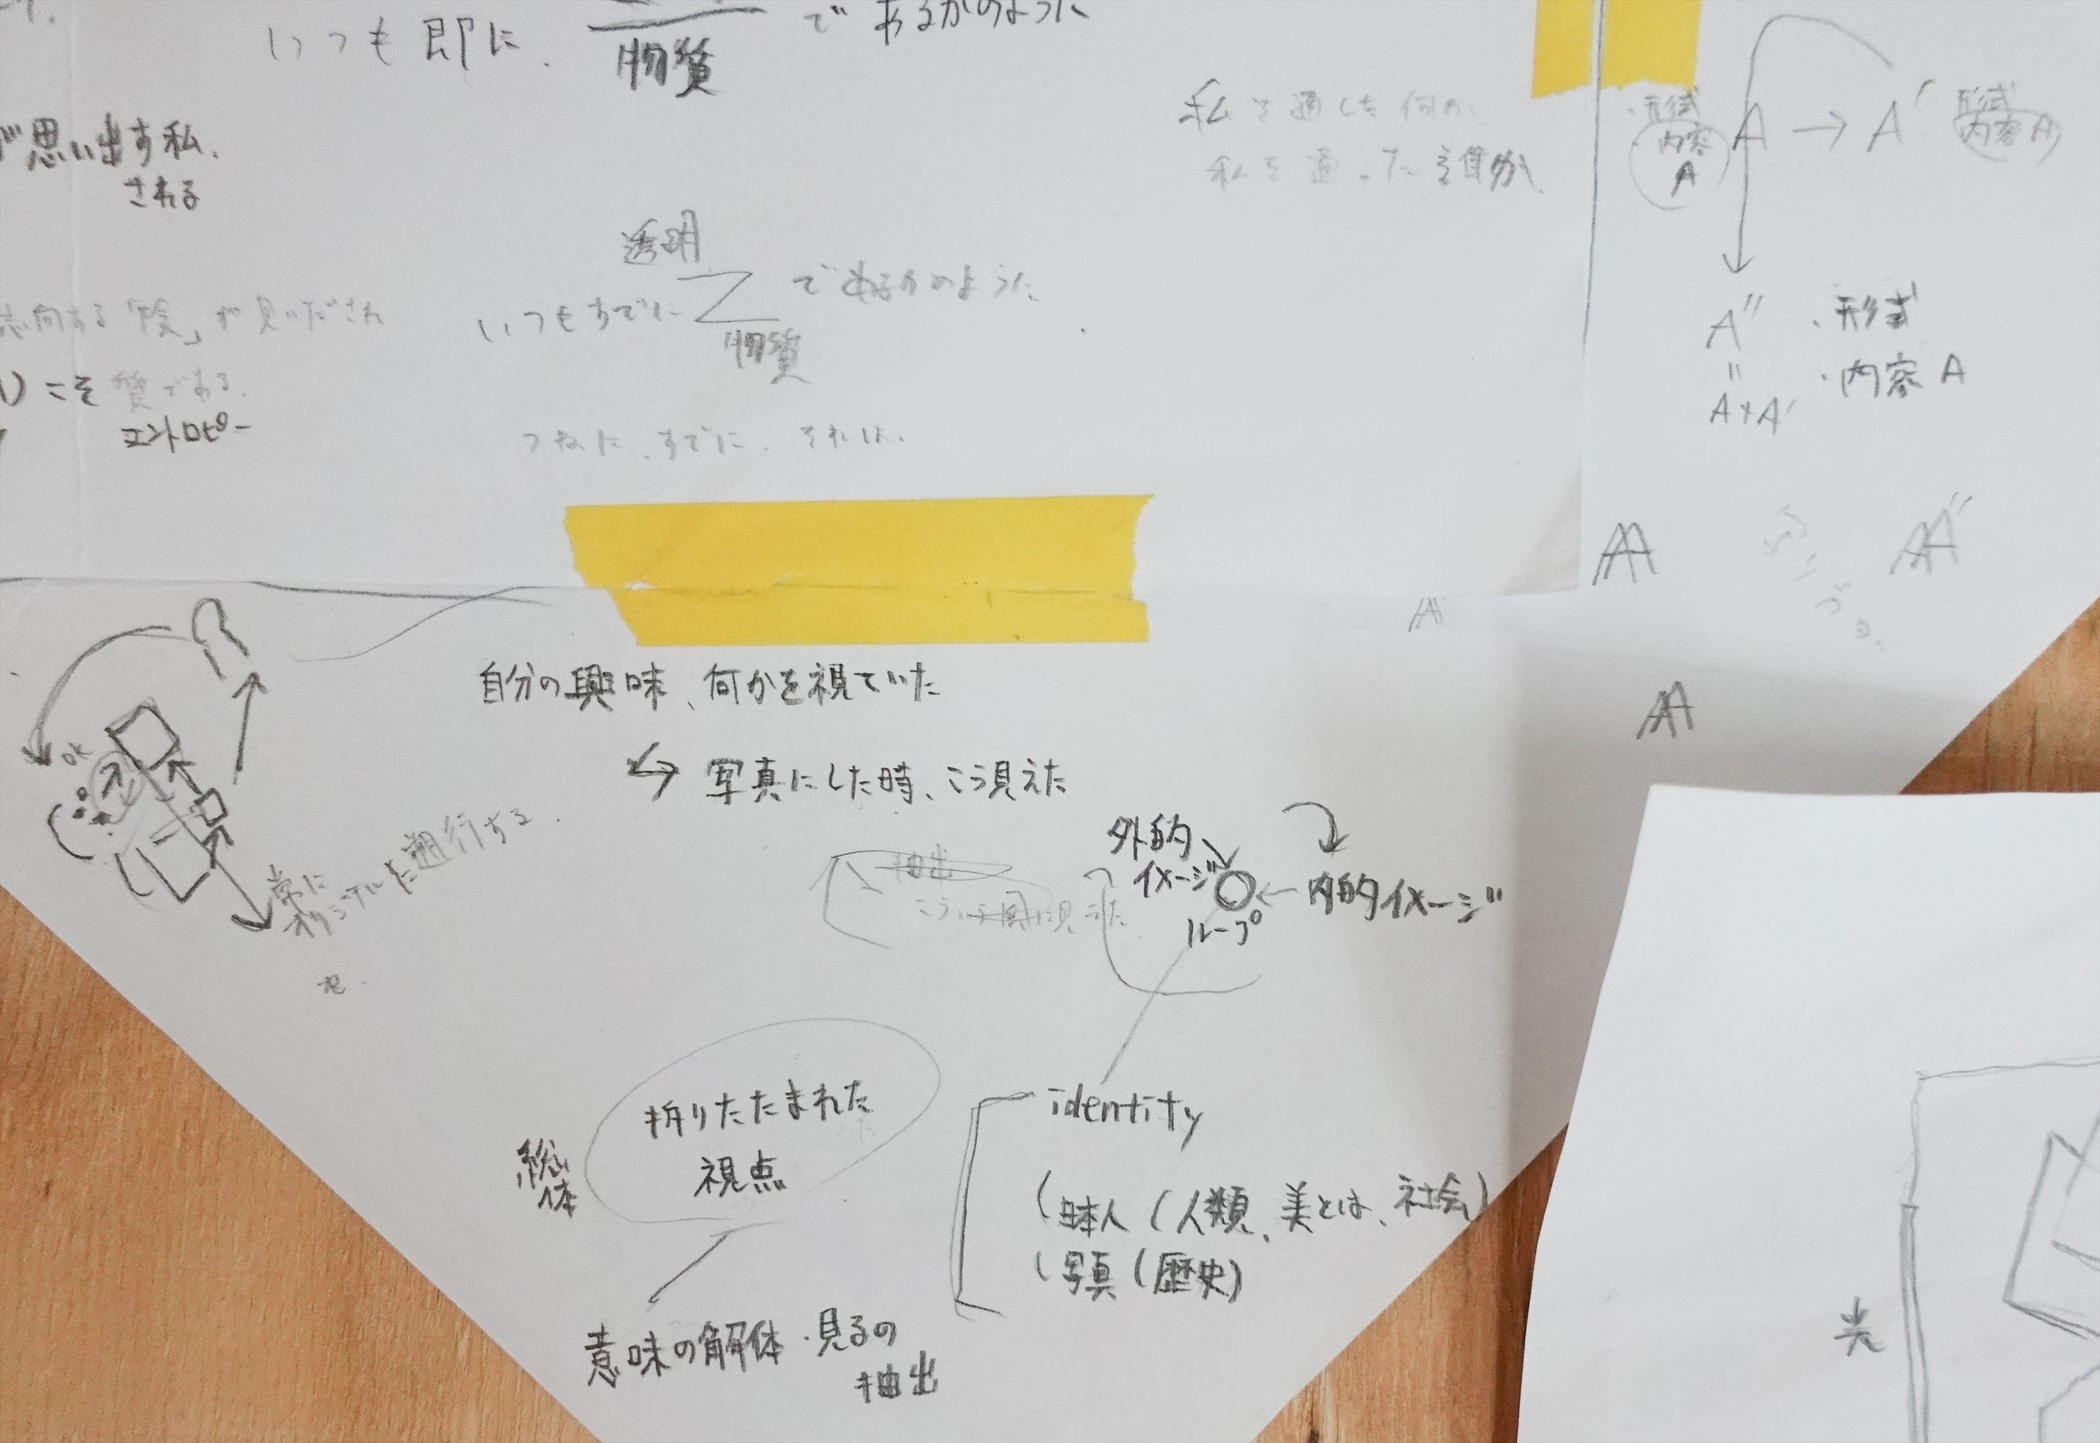 いつも即に、
物質
であるかのように
が思い出す私、
される
私を通した何か、
私を通った誰か
・形式
・内容
A
A → A' 形式
内容A
透明
いつもすでに
物質
であるかのように
志向する「陰」が見いだされ
こそ質である。
エントロピー
つねに、すでに、それは、
A'' ・形式
・内容A
"
A×A'
AA
AA'
AA
AA
OK
自分の興味、何かを視ていた
↔ 写真にした時、こう見えた
常に
オリジナルに遡行する
抽出
こういう風に見えた
外的
イメージ
ループ
内的イメージ
折りたたまれた
視点
総体
意味の解体・見るの
抽出
identity
(日本人(人類、美とは、社会)
(写真(歴史)
光